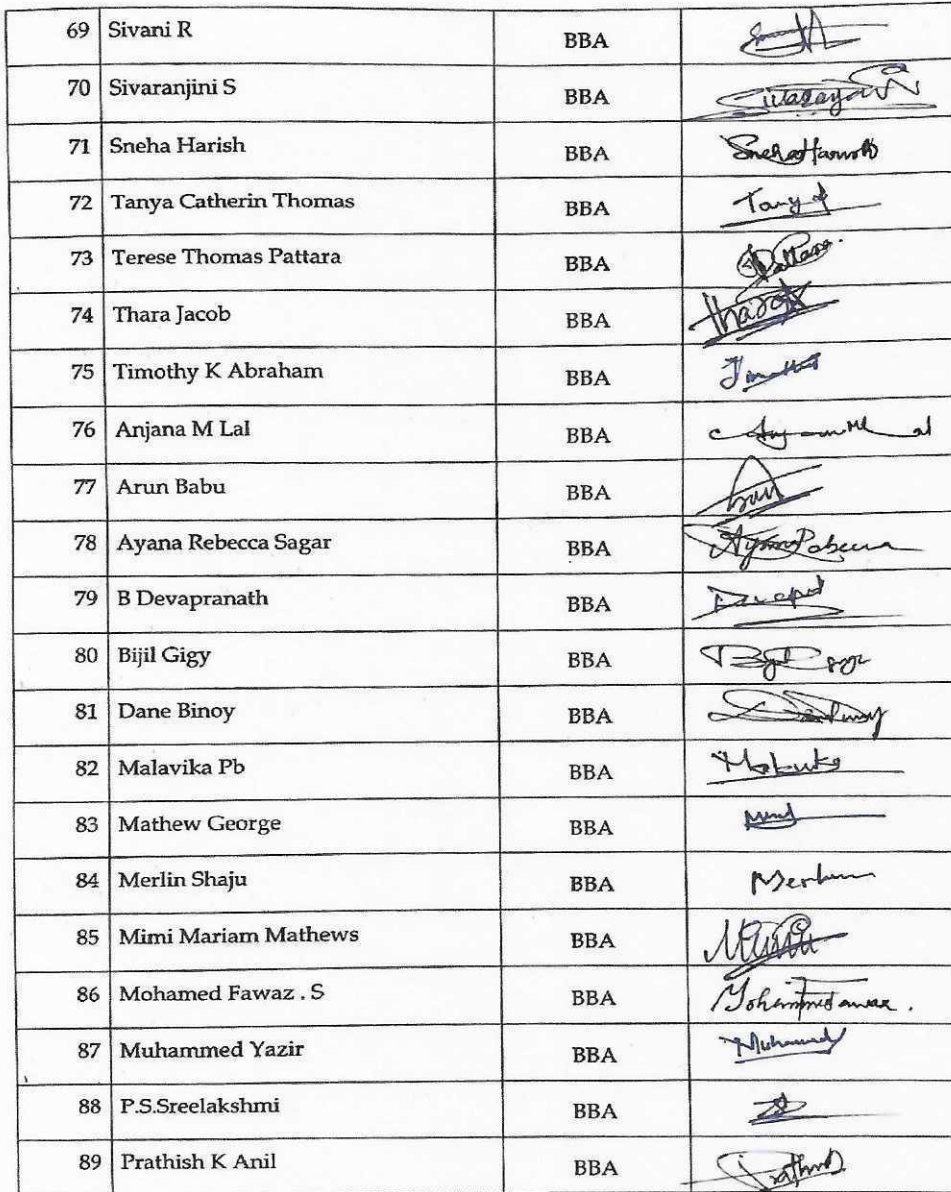 69 Sivani R BBA
70 Sivaranjini S BBA
71 Sneha Harish BBA Sneha Harish
72 Tanya Catherin Thomas BBA Tanya
73 Terese Thomas Pattara BBA Pattara.
74 Thara Jacob BBA Thara
75 Timothy K Abraham BBA
76 Anjana M Lal BBA
77 Arun Babu BBA Arun
78 Ayana Rebecca Sagar BBA
79 B Devapranath BBA
80 Bijil Gigy BBA
81 Dane Binoy BBA
82 Malavika Pb BBA
83 Mathew George BBA
84 Merlin Shaju BBA Merlin
85 Mimi Mariam Mathews BBA
86 Mohamed Fawaz . S BBA
87 Muhammed Yazir BBA Muhammed
88 P.S.Sreelakshmi BBA
89 Prathish K Anil BBA